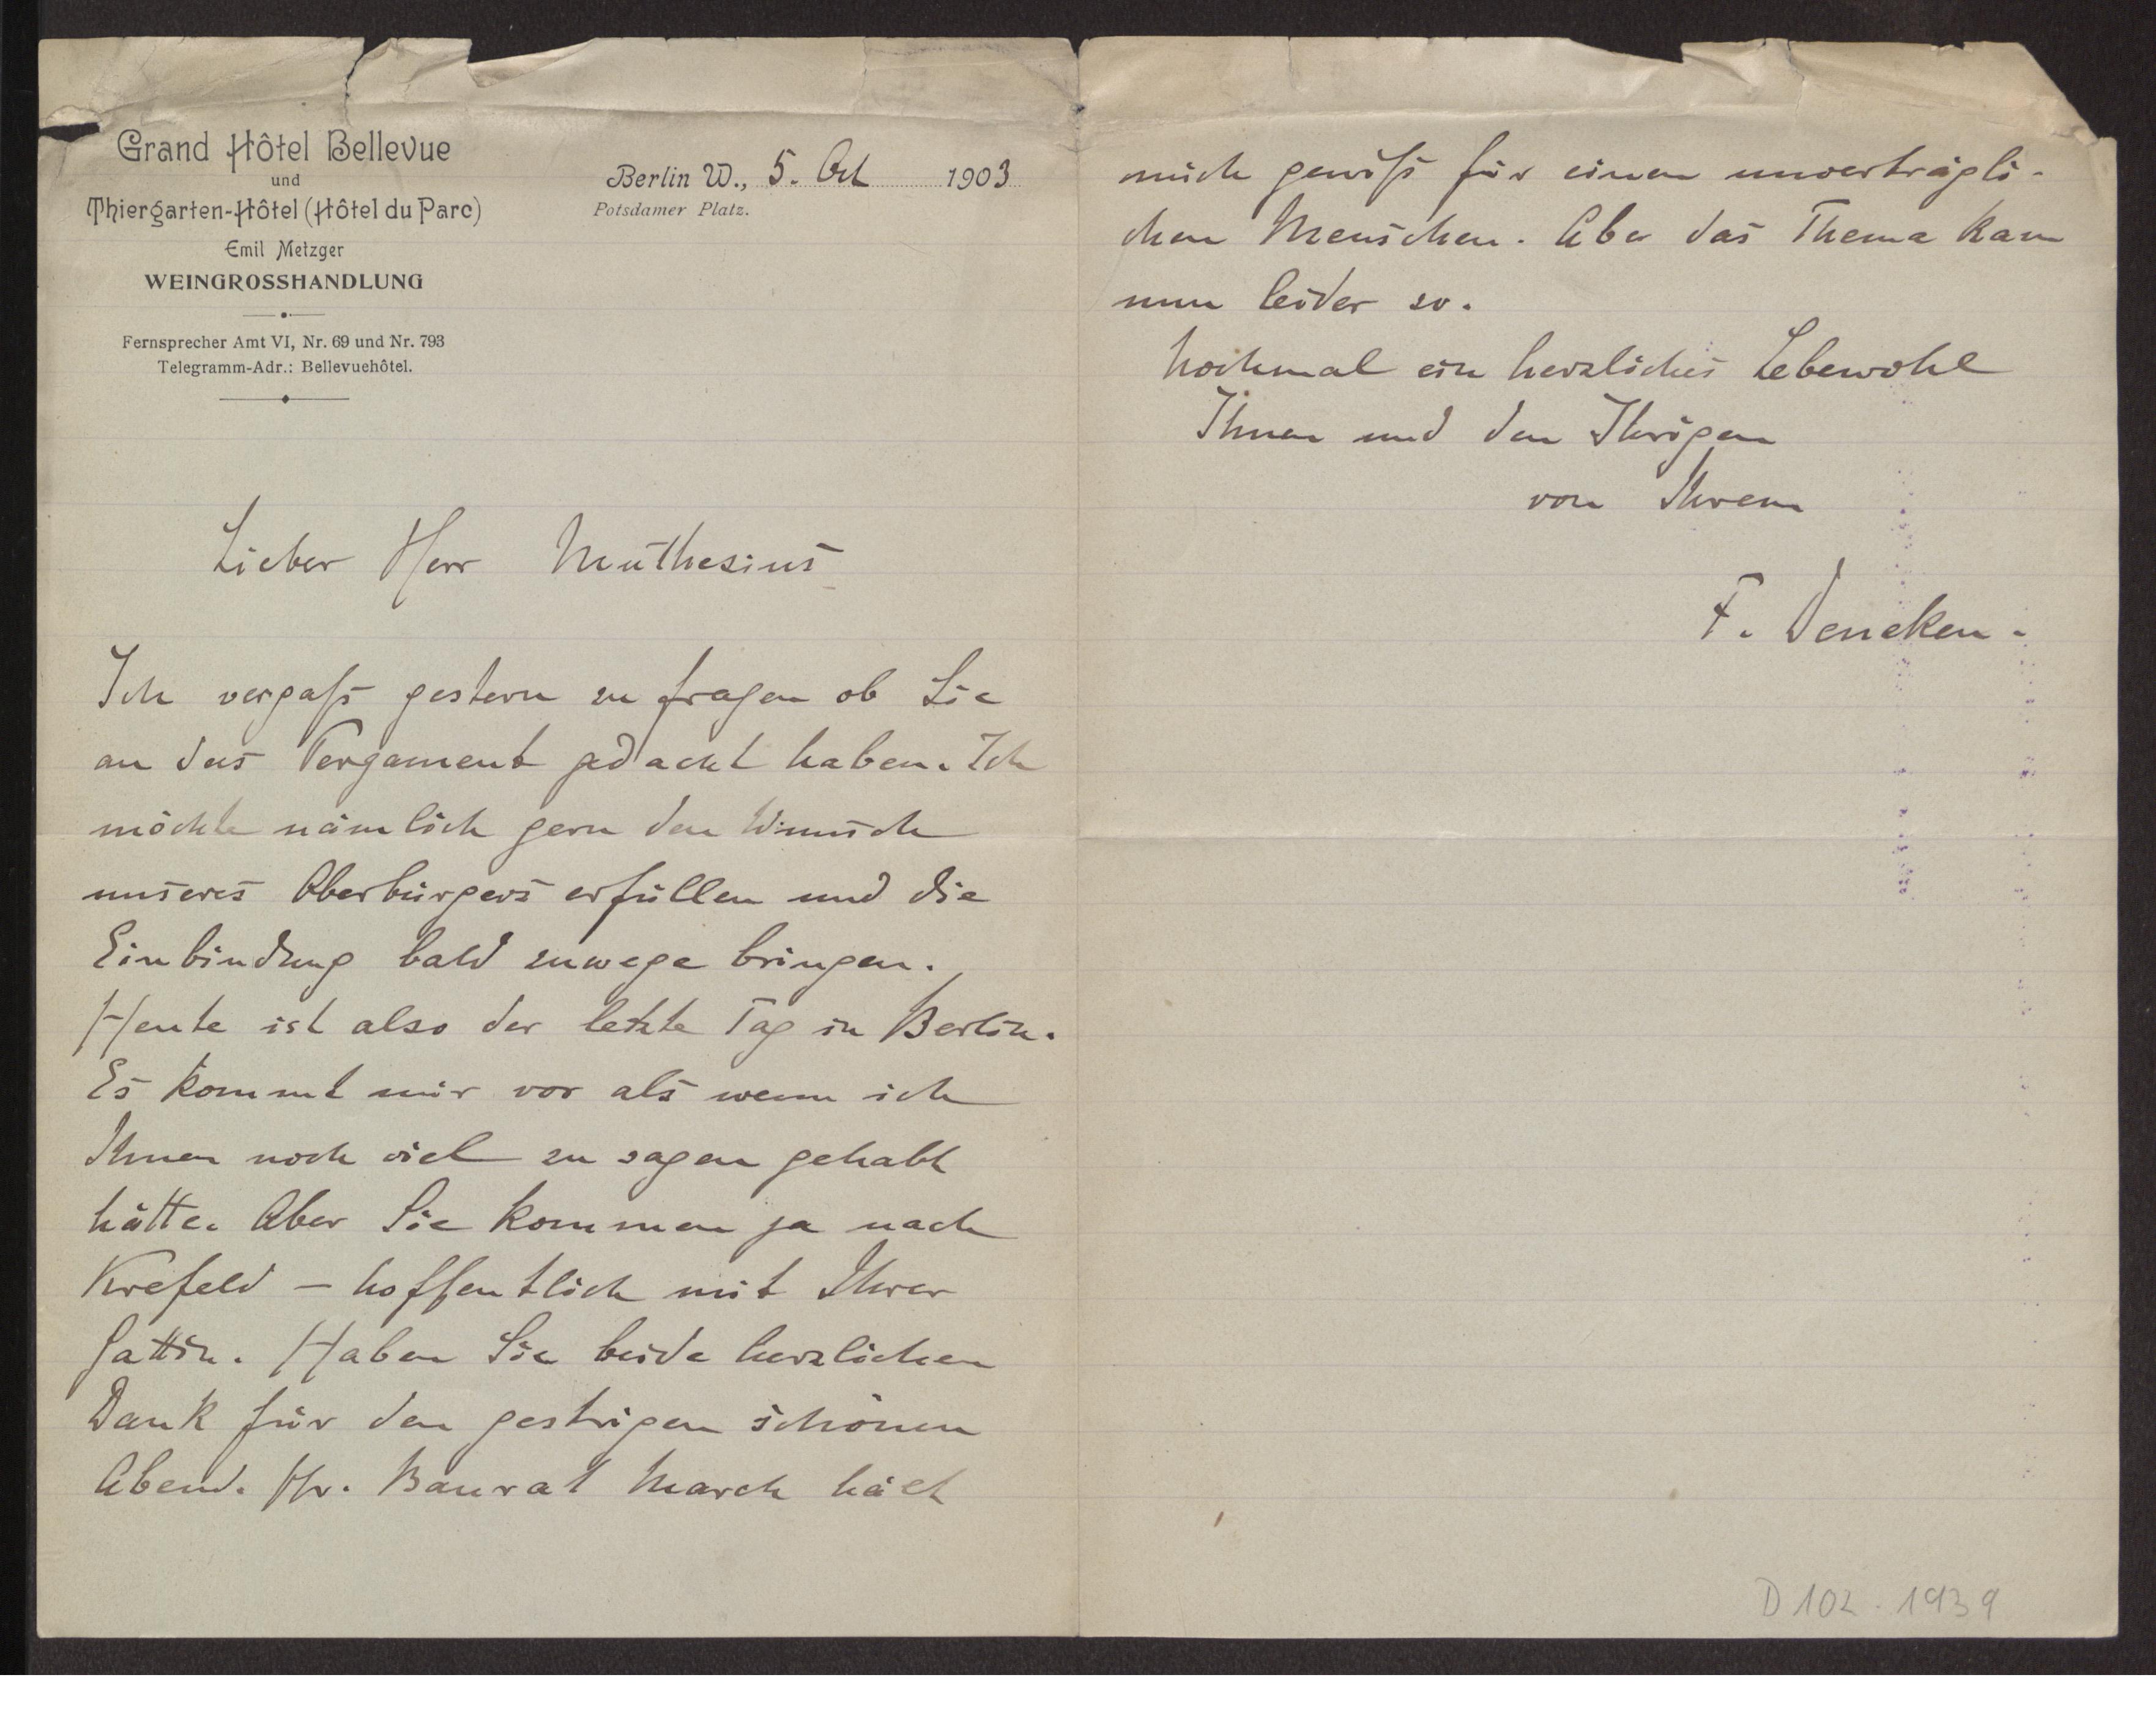 Grand Hôtel Bellevue
und
Thiergarten-Hôtel (Hôtel du Parc)
Emil Metzger
WEINGROSSHANDLUNG
Fernsprecher Amt VI, Nr. 69 und Nr. 793
Telegramm-Adr.: Bellevuehôtel.
Berlin W., 5. Oct 1903
Potsdamer Platz.
Lieber Herr Muthesius
Ich vergaß gestern zu fragen ob Sie
an das Pergament gedacht haben. Ich
möchte nämlich gern den Wunsch
unseres Oberbürgers erfüllen und die
Einbindung bald zuwege bringen.
Heute ist also der letzte Tag in Berlin.
Es kommt mir vor als wenn ich
Ihnen noch viel zu sagen gehabt
hätte. Aber Sie kommen ja nach
Krefeld – hoffentlich mit Ihrer
Gattin. Haben Sie beide herzlichen
Dank für den gestrigen schönen
Abend. Hr. Baurat March hält
mich gewiß für einen unverträgli-
chen Menschen. Aber das Thema kam
nun leider so.
Nochmal ein herzliches Lebewohl
Ihnen und den Ihrigen
von Ihrem
F. Deneken.
D 102. 1939